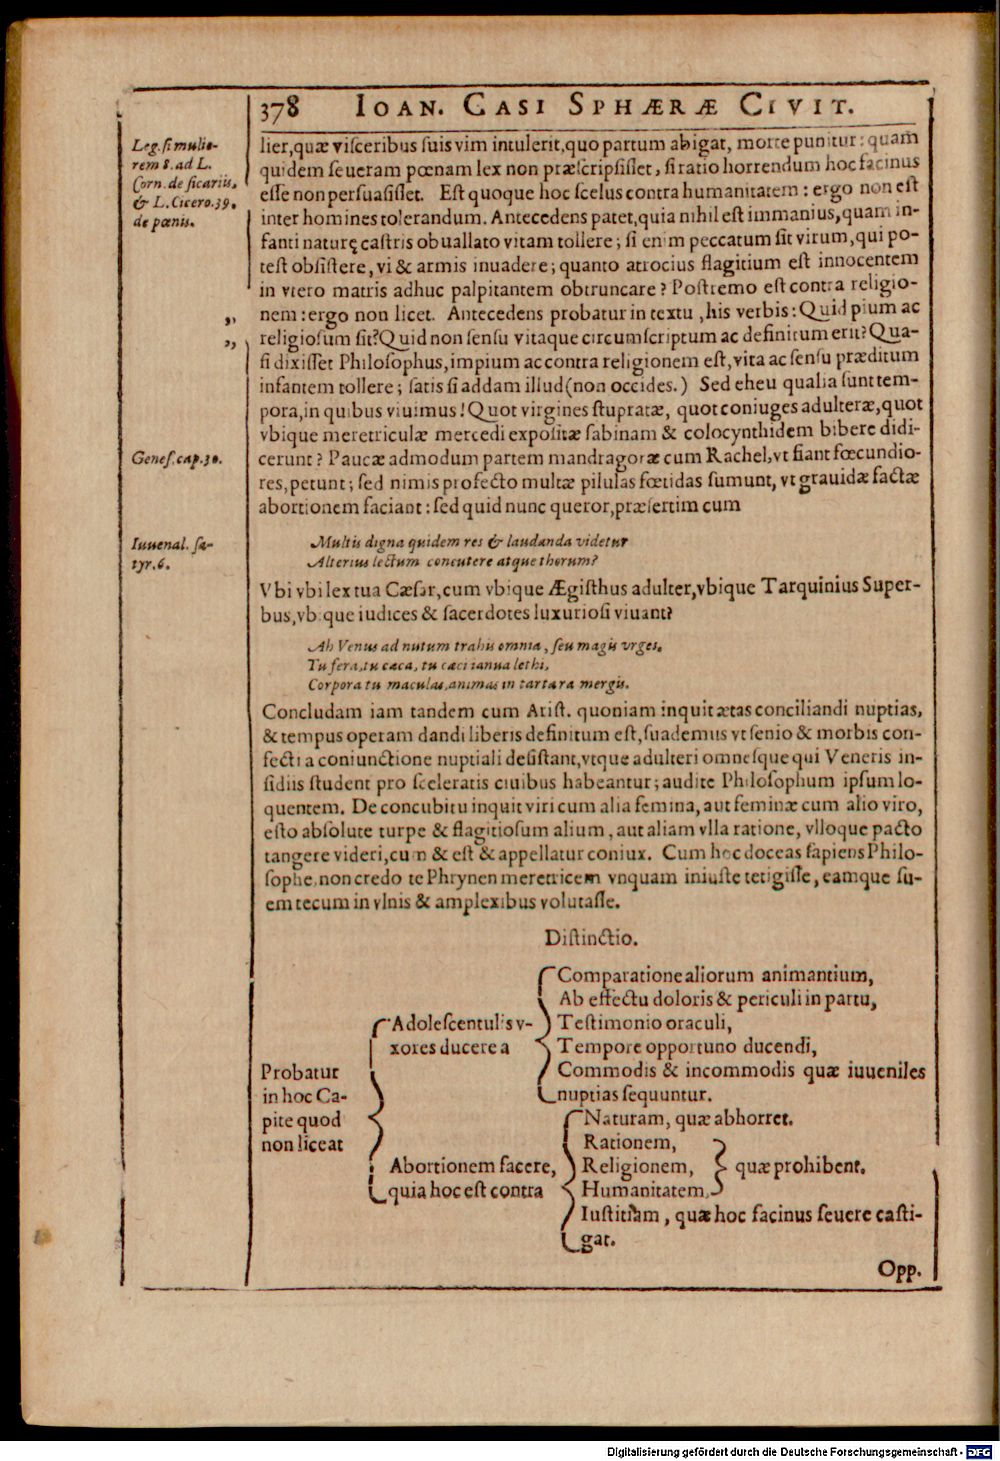 378 IOAN. CASI SPHÆRÆ CIVIT.
Leg. si mulie-
rem 8. ad L.
Corn. de sicariis,
& L. Cicero. 39.
de pœnis.
lier, quæ visceribus suis vim intulerit, quo partum abigat, morte punitur: quam
quidem seueram pœnam lex non præscripsisset, si ratio horrendum hoc facinus
esse non persuasisset. Est quoque hoc scelus contra humanitatem: ergo non est
inter homines tolerandum. Antecedens patet, quia nihil est immanius, quam in-
fanti naturę castris obuallato vitam tollere; si enim peccatum sit virum, qui po-
test obsistere, vi & armis inuadere; quanto atrocius flagitium est innocentem
in vtero matris adhuc palpitantem obtruncare? Postremo est contra religio-
nem: ergo non licet. Antecedens probatur in textu, his verbis: Quid pium ac
„
religiosum sit? Quid non sensu vitaque circumscriptum ac definitum erit? Qua-
„
si dixisset Philosophus, impium ac contra religionem est, vita ac sensu præditum
infantem tollere; satis si addam illud (non occides.) Sed eheu qualia sunt tem-
pora, in quibus viuimus! Quot virgines stupratæ, quot coniuges adulteræ, quot
vbique meretriculæ mercedi expositæ sabinam & colocynthidem bibere didi-
Genes. cap. 30.
cerunt? Paucæ admodum partem mandragoræ cum Rachel, vt fiant fœcundio-
res, petunt; sed nimis profecto multæ pilulas fœtidas sumunt, vt grauidæ factæ
abortionem faciant: sed quid nunc queror, præsertim cum
Iuuenal. sa-
tyr. 6.
Multis digna quidem res & laudanda videtur
Alterius lectum concutere atque thorum?
Vbi vbi lex tua Cæsar, cum vbique Ægisthus adulter, vbique Tarquinius Super-
bus, vbique iudices & sacerdotes luxuriosi viuant?
Ah Venus ad nutum trahis omnia, seu magis vrges,
Tu fera, tu cæca, tu cæci ianua lethi,
Corpora tu maculas, animas in tartara mergis.
Concludam iam tandem cum Arist. quoniam inquit ætas conciliandi nuptias,
& tempus operam dandi liberis definitum est, suademus vt senio & morbis con-
fecti a coniunctione nuptiali desistant, vtque adulteri omnesque qui Veneris in-
sidiis student pro sceleratis ciuibus habeantur; audite Philosophum ipsum lo-
quentem. De concubitu inquit viri cum alia femina, aut feminæ cum alio viro,
esto absolute turpe & flagitiosum alium, aut aliam vlla ratione, vlloque pacto
tangere videri, cum & est & appellatur coniux. Cum hoc doceas sapiens Philo-
sophe, non credo te Phrynen meretricem vnquam iniuste tetigisse, eamque su-
em tecum in vlnis & amplexibus volutasse.
Distinctio.
Probatur
in hoc Ca-
pite quod
non liceat
Adolescentulis v-
xores ducere a
Comparatione aliorum animantium,
Ab effectu doloris & periculi in partu,
Testimonio oraculi,
Tempore opportuno ducendi,
Commodis & incommodis quæ iuueniles
nuptias sequuntur.
Abortionem facere,
quia hoc est contra
Naturam, quæ abhorret.
Rationem,
Religionem,
Humanitatem,
quæ prohibent.
Iustitiam, quæ hoc facinus seuere casti-
gat.
Opp.
Digitalisierung gefördert durch die Deutsche Forschungsgemeinschaft - DFG